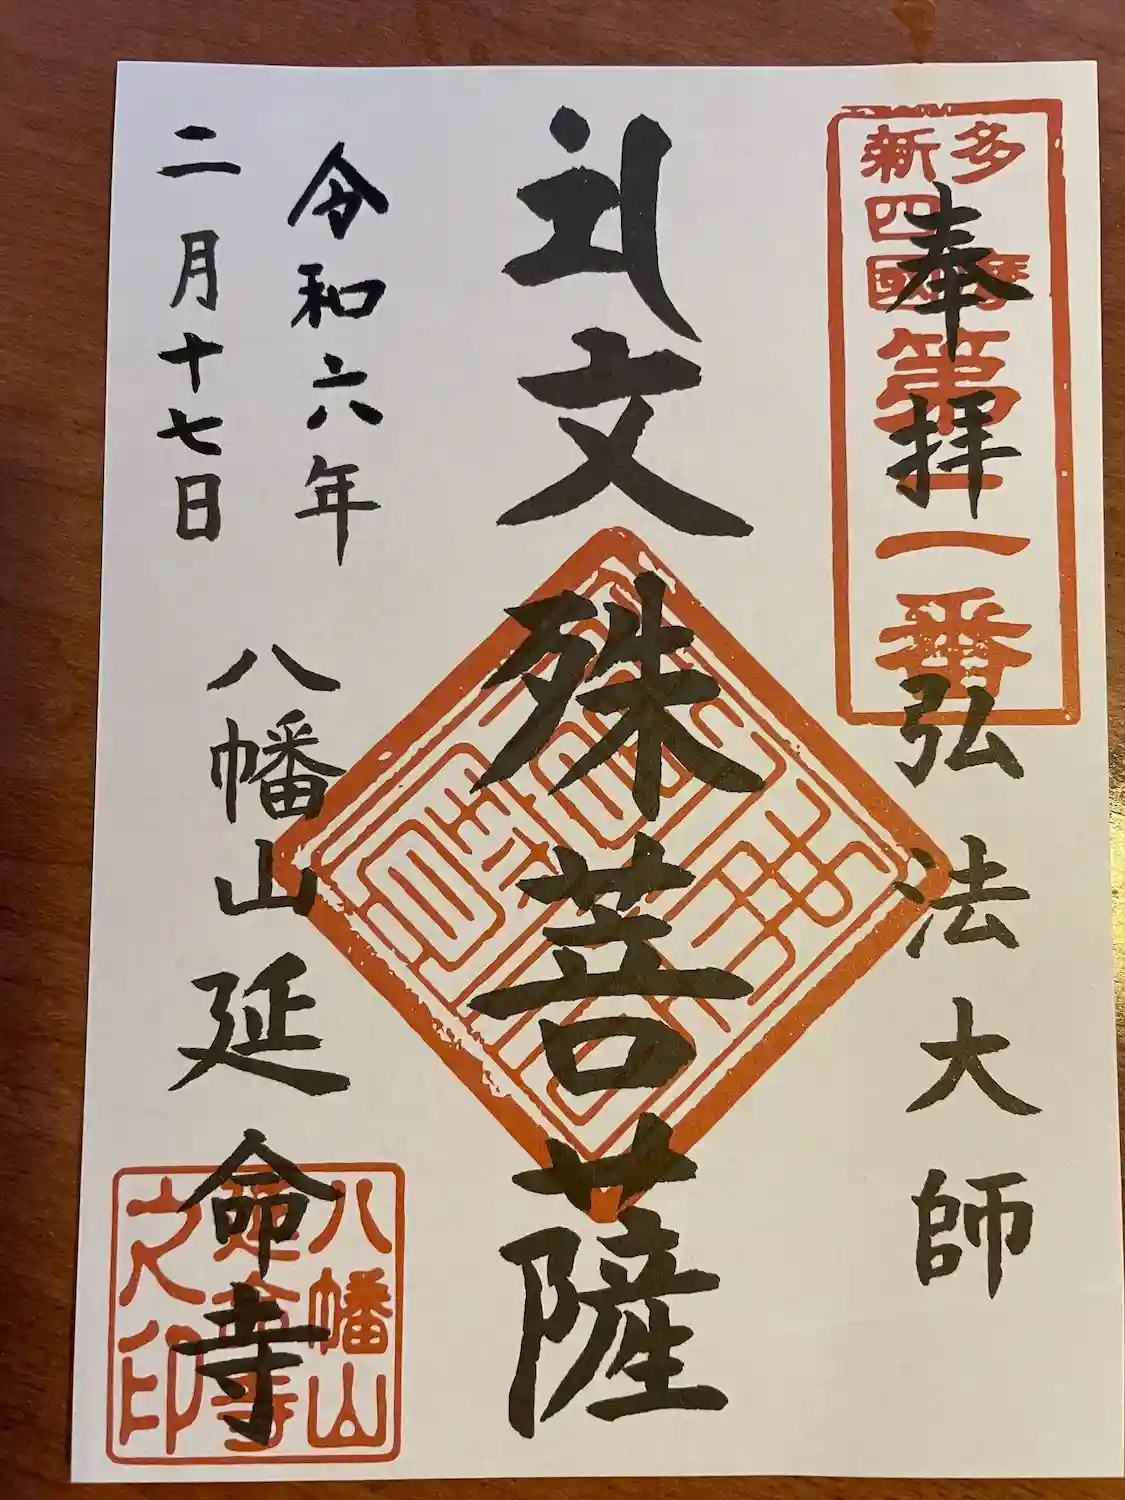 多摩
新四國
第二番
奉拝
弘法大師
礼文殊菩薩
令和六年
二月十七日
八幡山延命寺
八幡山
延命寺
之印